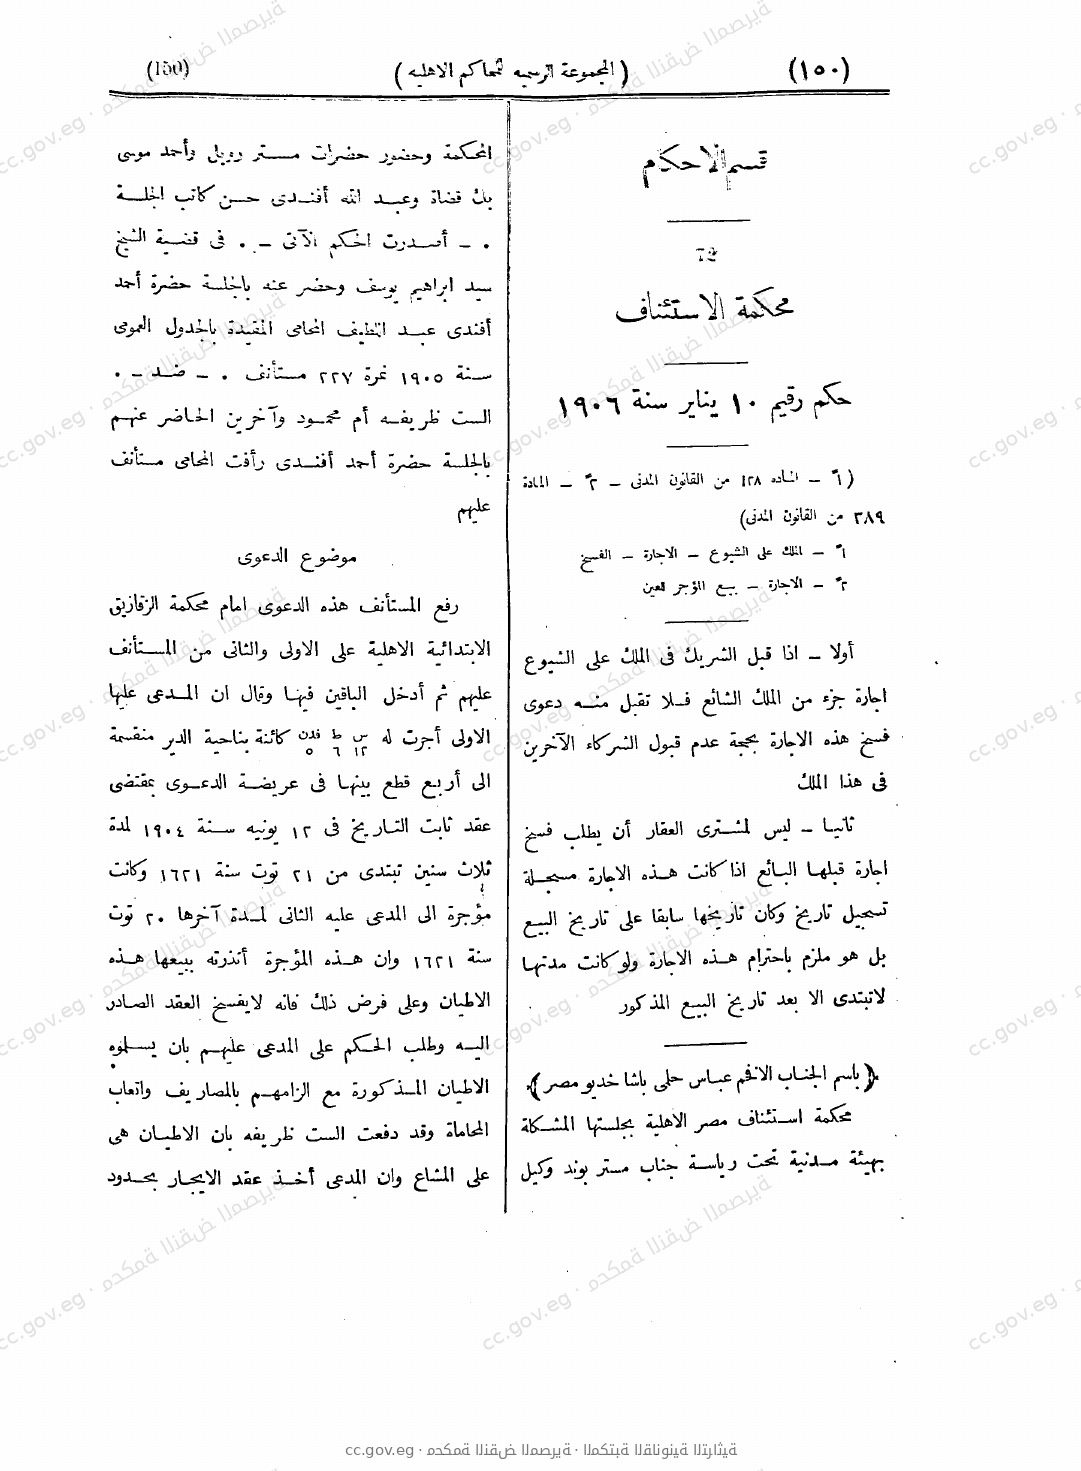 (١٥٠)
(المجموعة الرسميه للمحاكم الاهليه)
(150)
قسم الاحكام
72
محكمة الاستئناف
حكم رقيم ١٠ يناير سنة ١٩٠٦
(١ً – الماده ١٢٨ من القانون المدنى – ٢ً – المادة
٣٨٩ من القانون المدنى)
١ً – الملك على الشيوع – الاجارة – الفسخ
٢ً – الاجارة – بيع المؤجر لمعين
أولا – اذا قبل الشريك فى الملك على الشيوع
اجارة جزء من الملك الشائع فلا تقبل منه دعوى
فسخ هذه الاجارة بحجة عدم قبول الشركاء الآخرين
فى هذا الملك
ثانيا – ليس لمشترى العقار أن يطلب فسخ
اجارة قبلها البائع اذا كانت هذه الاجارة مسجلة
تسجيل تاريخ وكان تاريخها سابقا على تاريخ البيع
بل هو ملزم باحترام هذه الاجارة ولو كانت مدتها
لا تبتدى الا بعد تاريخ البيع المذكور
(باسم الجناب الافخم عباس حلمى باشا خديو مصر)
محكمة استئناف مصر الاهلية بجلستها المشكلة
بهيئة مدنية تحت رياسة جناب مستر بوند وكيل
المحكمة وحضور حضرات مستر رويل وأحمد موسى
بك قضاة وعبد الله أفندى حسن كاتب الجلسة
. – أصدرت الحكم الآتى – . فى قضية الشيخ
سيد ابراهيم يوسف وحضر عنه بالجلسة حضرة أحمد
أفندى عبد اللطيف المحامى المقيدة بالجدول العمومى
سنة ١٩٠٥ نمرة ٢٢٧ مستأنف . – ضد – .
الست ظريفه أم محمود وآخرين الحاضر عنهم
بالجلسة حضرة أحمد أفندى رأفت المحامى مستأنف
عليهم
موضوع الدعوى
رفع المستأنف هذه الدعوى امام محكمة الزقازيق
الابتدائية الاهلية على الاولى والثانى من المستأنف
عليهم ثم أدخل الباقين فيها وقال ان المدعى عليها
الاولى أجرت له س ١٢ ط ٦ فدن ٥ كائنة بناحية الدير منقسمة
الى أربع قطع بينها فى عريضة الدعوى بمقتضى
عقد ثابت التاريخ فى ١٢ يونيه سنة ١٩٠٤ لمدة
ثلاث سنين تبتدى من ٢١ توت سنة ١٦٢١ وكانت
مؤجرة الى المدعى عليه الثانى لمدة آخرها ٢٠ توت
سنة ١٦٢١ وان هذه المؤجرة أنذرته ببيعها هذه
الاطيان وعلى فرض ذلك فانه لا يفسخ العقد الصادر
اليه وطلب الحكم على المدعى عليهم بان يسلموه
الاطيان المذكورة مع الزامهم بالمصاريف واتعاب
المحاماة وقد دفعت الست ظريفه بان الاطيان هى
على المشاع وان المدعى أخذ عقد الايجار بحدود
cc.gov.eg · محكمة النقض المصرية · المكتبة القانونية التراثية